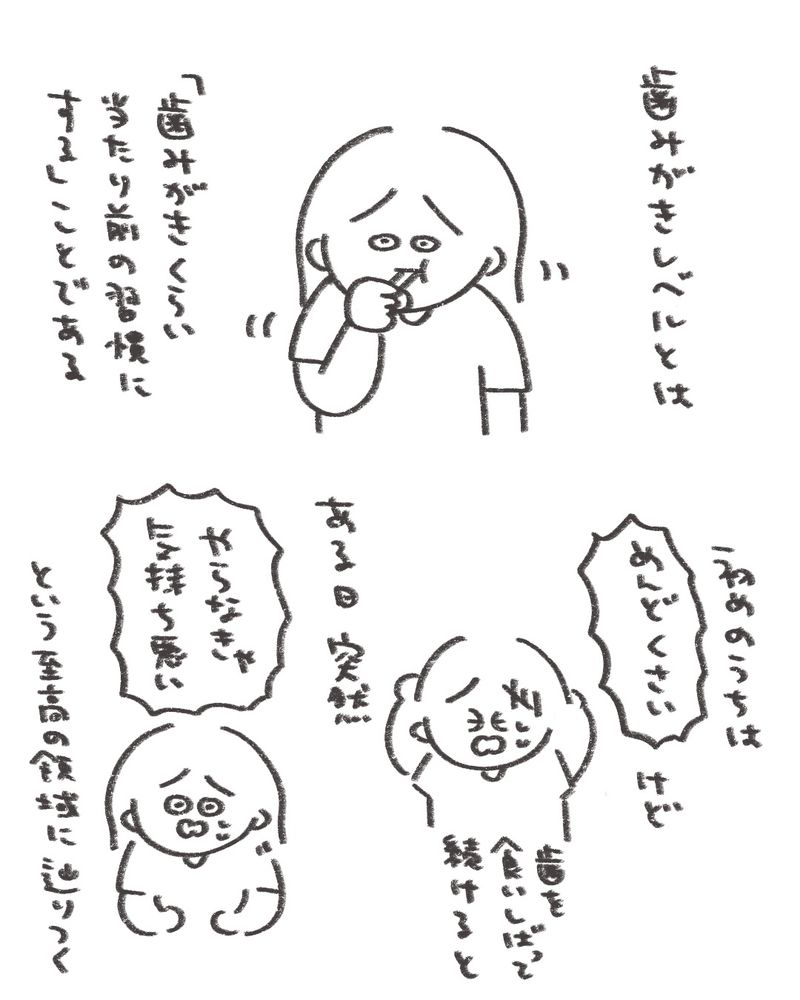 歯みがきレベルとは
「歯みがきくらい
当たり前の習慣に
する」ことである
初めのうちは
めんどくさい
けど
歯を
食いしばって
続けると
ある日 突然
やらなきゃ
気持ち悪い
という至高の領域に辿りつく